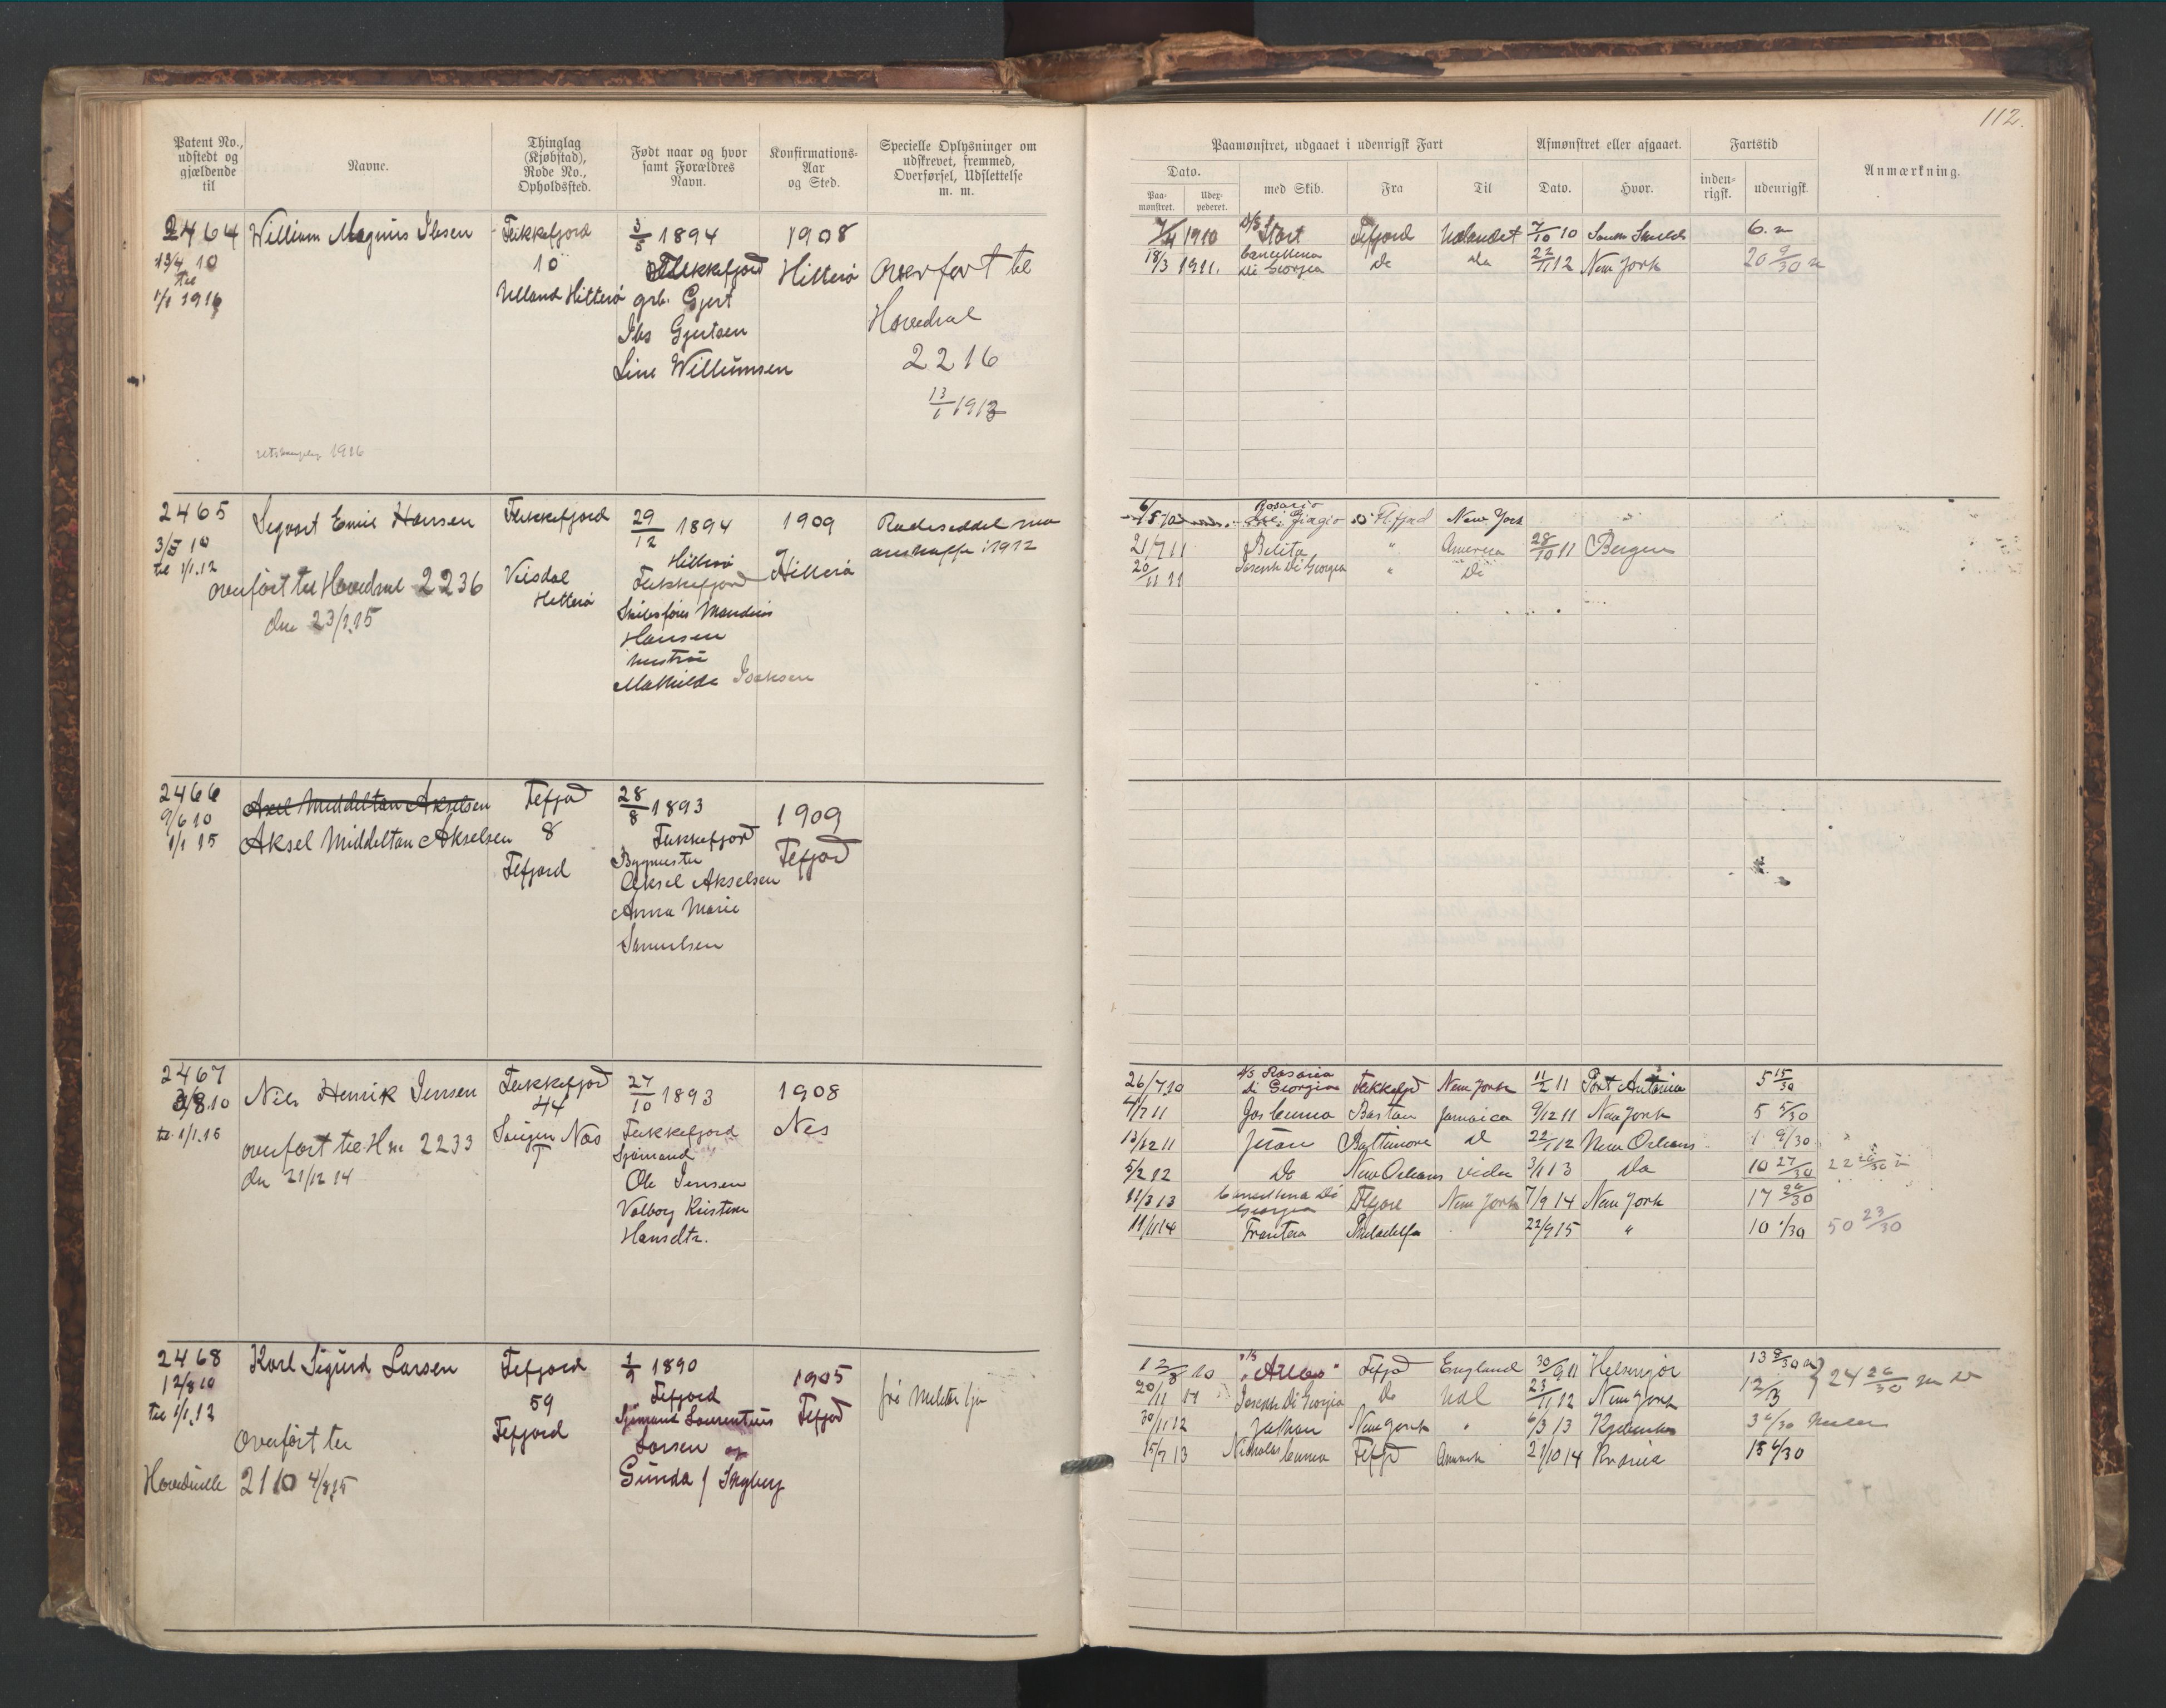 112.
Patent No., udstedt og gjældende til
Navne.
Thinglag (Kjøbstad), Rode No., Opholdssted.
Født naar og hvor samt Forældres Navn.
Konfirmations-Aar og Sted.
Specielle Oplysninger om udskrevet, fremmed, Overførsel, Udslettelse m. m.
Paamønstret, udgaaet i udenrigsk Fart
Dato.
Paa-mønstret.
Udex-pederet.
med Skib.
Fra
Til
Afmønstret eller afgaaet.
Dato.
Hvor.
Fartstid
inden-rigsk.
udenrigsk.
Anmærkning.
2464
13/4 10
til
1/1 1916
William Magnus Ibsen
Flekkefjord
10
Ulland Hitterø
3/5 1894
Flekkefjord
grb. Gjert
Ibs Gjertsen
Line Willumsen
1908
Hitterø
Overført til
Hovedrul
2216
13/1 1913
7/4 1910 D/S Start Fefjord Udlandet 7/10 10 South Shields 6. m
18/3 1911. Di Georgia Do Do 22/11 12 New York 20 9/30 m
2465
3/5 10
til 1/1.12
Sigvart Emil Hansen
overført til Hovedrul 2236
den 23/1.15
Flekkefjord
Veisdal
Hitterø
29/12 1894
Hitterø
Flekkefjord
Skibsfører Mandius
Hansen
hustru
Mathilde Isaksen
1909
Hitterø
Rulleseddel maa
anskaffe i 1912
Rosario
Di Giorgio Flfjord New York
21/7 11 Belita " America 28/10 11 Bergen
20/11 11 Joseph Di Georgia " Do
2466
9/6 10
1/1 15
Axel Middeltan Akselsen
Aksel Middeltan Akselsen
Fefjod
8
Fefjord
28/8 1893
Flekkefjord
Bygmester
Aksel Akselsen
Anna Marie
Samuelsen
1909
Fefjord
2467
3/8 10
til 1/1.15
Nils Henrik Jensen
overført til H nr 2233
den 21/12 14
Flekkefjord
44
27/10 1893
Flekkefjord
Sjømand
Ole Jensen
Valborg Kristine
Hansdtr.
1908
Nes
26/7 10 D/S Rosaria Di Georgia Flekkefjd New York 11/2 11 Port Antonia 5 15/30
4/7 11 Jos Cuneo Boston Jamaica 9/12 11 New York 5 5/30
13/12 11 Baltimore do 22/1 12 New Orleans 1 9/30
5/2 12 Do New Orleans 3/1 13 Do 10 27/30 22 26/30 m
11/3 13 Di Georgia Flfjord New York 7/9 14 New York 17 26/30
11/11 14 Frontera Philadelfia 22/9 15 " 10 1/30 50 23/30
2468
12/8 10
til 1/1.12
Karl Sigurd Larsen
Overført til
Hovedrulle 2110 4/8 15
Fefjord
59
Fefjord
1890
Fefjord
Sjømand Laurentius
Larsen og
Gunda f Ingberg
1905
Fefjord
12/8 10 D/S Fefjod England 30/9 11 Helsingør 13 8/30 m
20/11 11 Joseph Di Georgia Do Udl 23/11 12 New York 24 26/30
30/11 12 New York " 6/3 13 3 6/30
15/7 13 Nicholas Cuneo Fefjd 21/10 14 15 6/30